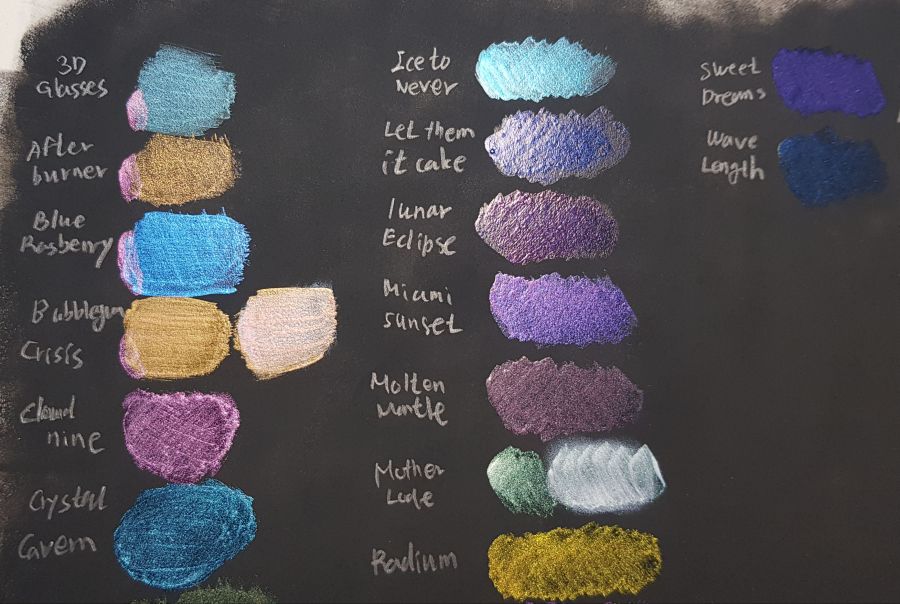 3D
Glasses
After
burner
Blue
Rasberry
Bubblegum
Crisis
Cloud
nine
Crystal
Cavern
Ice to
Never
Let them
it cake
lunar
Eclipse
Miami
sunset
Molten
Mantle
Mother
Lode
Radium
Sweet
Dreams
Wave
Length